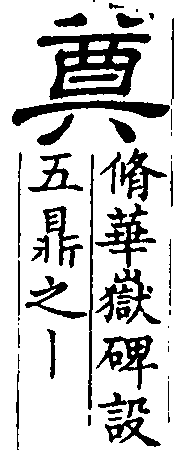 奠
脩華嶽碑設
五鼎之丨